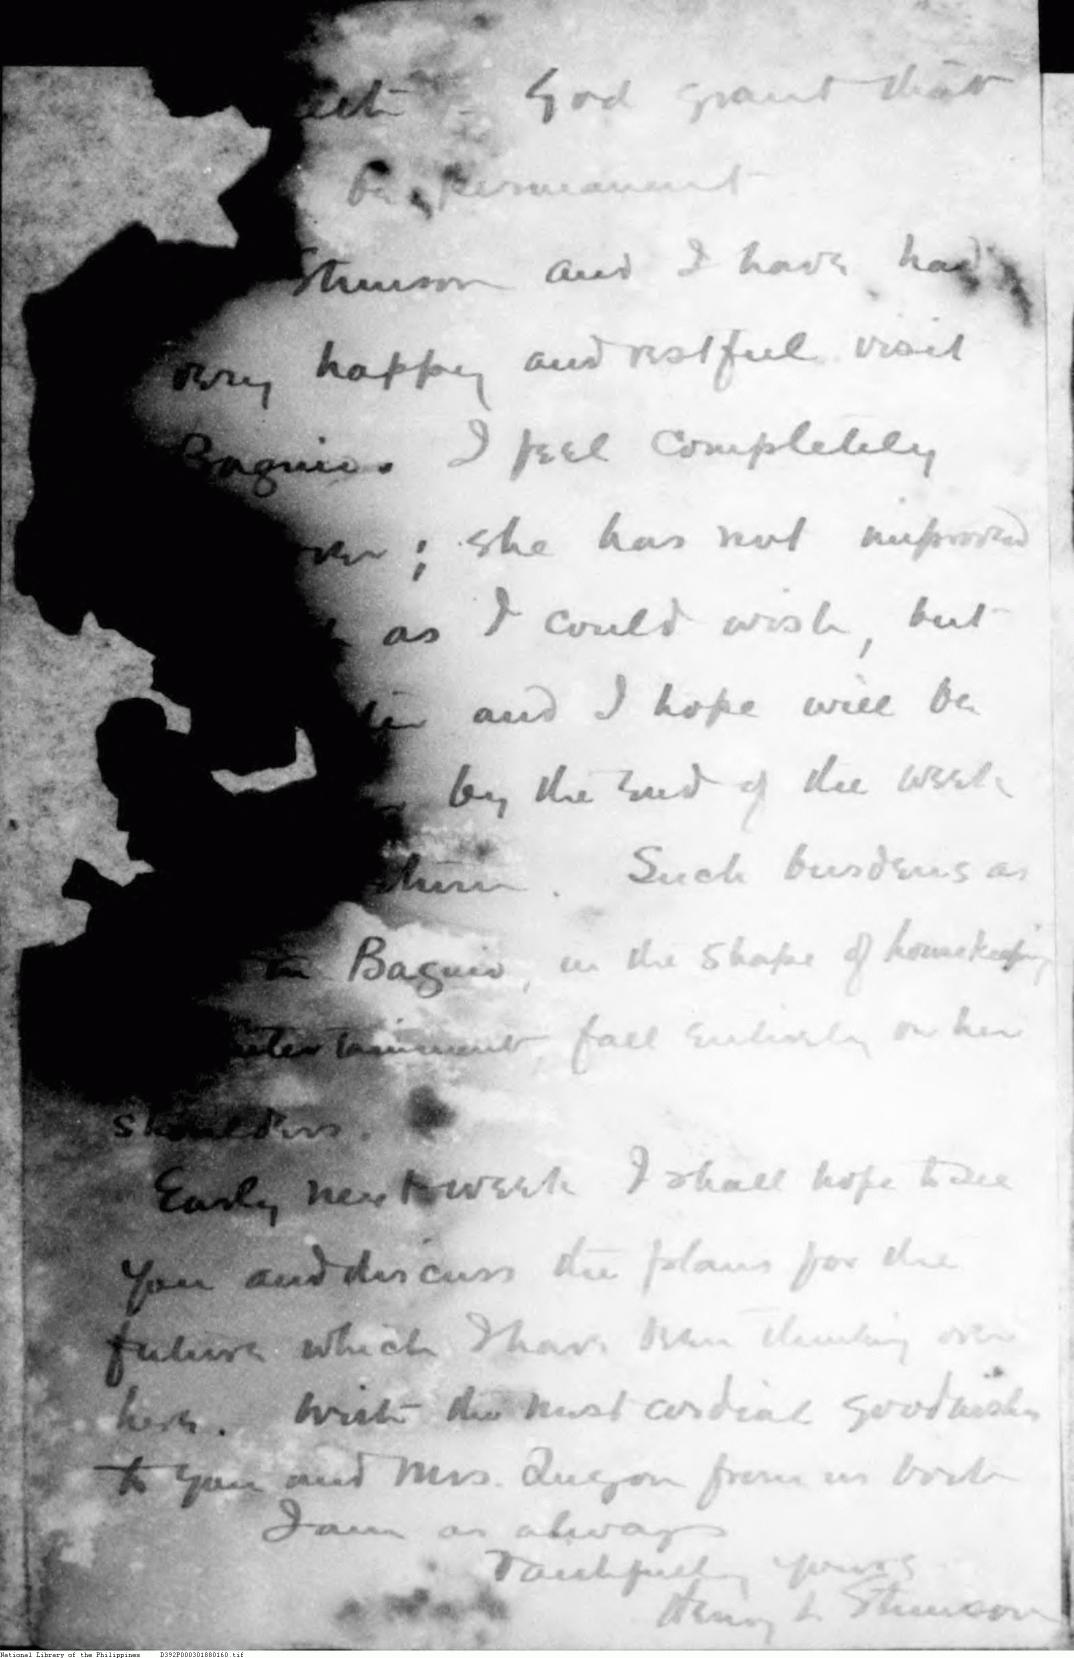 God grant that
be permanent
Stimson and I have had
very happy and restful visit
Baguio. I feel completely
; she has not improved
as I could wish, but
and I hope will be
by the end of the week
. Such burdens as
Baguio, in the shape of housekeeping
entertainment, fall entirely on her
shoulders.
Early next week I shall hope to see
you and discuss the plans for the
future which I have been thinking over
here. With the most cordial good wishes
to you and Mrs. Quezon from us both
I am as always
Faithfully yours
Henry L Stimson
National Library of the Philippines D392P000301880160.tif